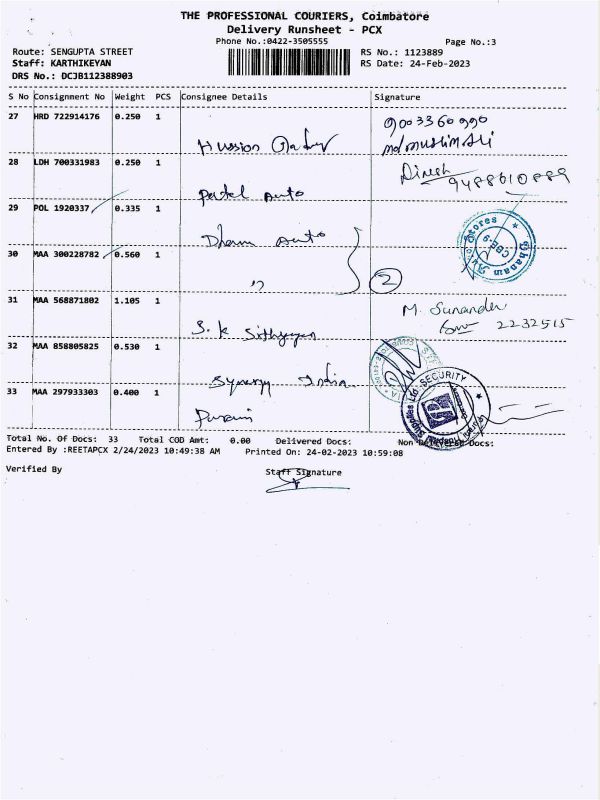 THE PROFESSIONAL COURIERS, Coimbatore
Delivery Runsheet - PCX
Phone No.:0422-3505555
Page No.:3
Route: SENGUPTA STREET
RS No.: 1123889
Staff: KARTHIKEYAN
RS Date: 24-Feb-2023
DRS No.: DCJB112388903
S No Consignment No Weight PCS Consignee Details Signature
27 HRD 722914176 0.250 1
9003360990
28 LDH 700331983 0.250 1
Patel Auto
Dinesh
9488610889
29 POL 1920337 0.335 1
Dhanam Auto
Dhanam Auto Stores
CBE-9
30 MAA 300228782 0.560 1
"
2
31 MAA 568871802 1.105 1
S.K
M. Sunander
2232515
32 MAA 858805825 0.530 1
Synergy India
33 MAA 297933303 0.400 1
SECURITY
Total No. Of Docs: 33 Total COD Amt: 0.00 Delivered Docs: Non Delivered Docs:
Entered By :REETAPCX 2/24/2023 10:49:38 AM Printed On: 24-02-2023 10:59:08
Verified By
Staff Signature